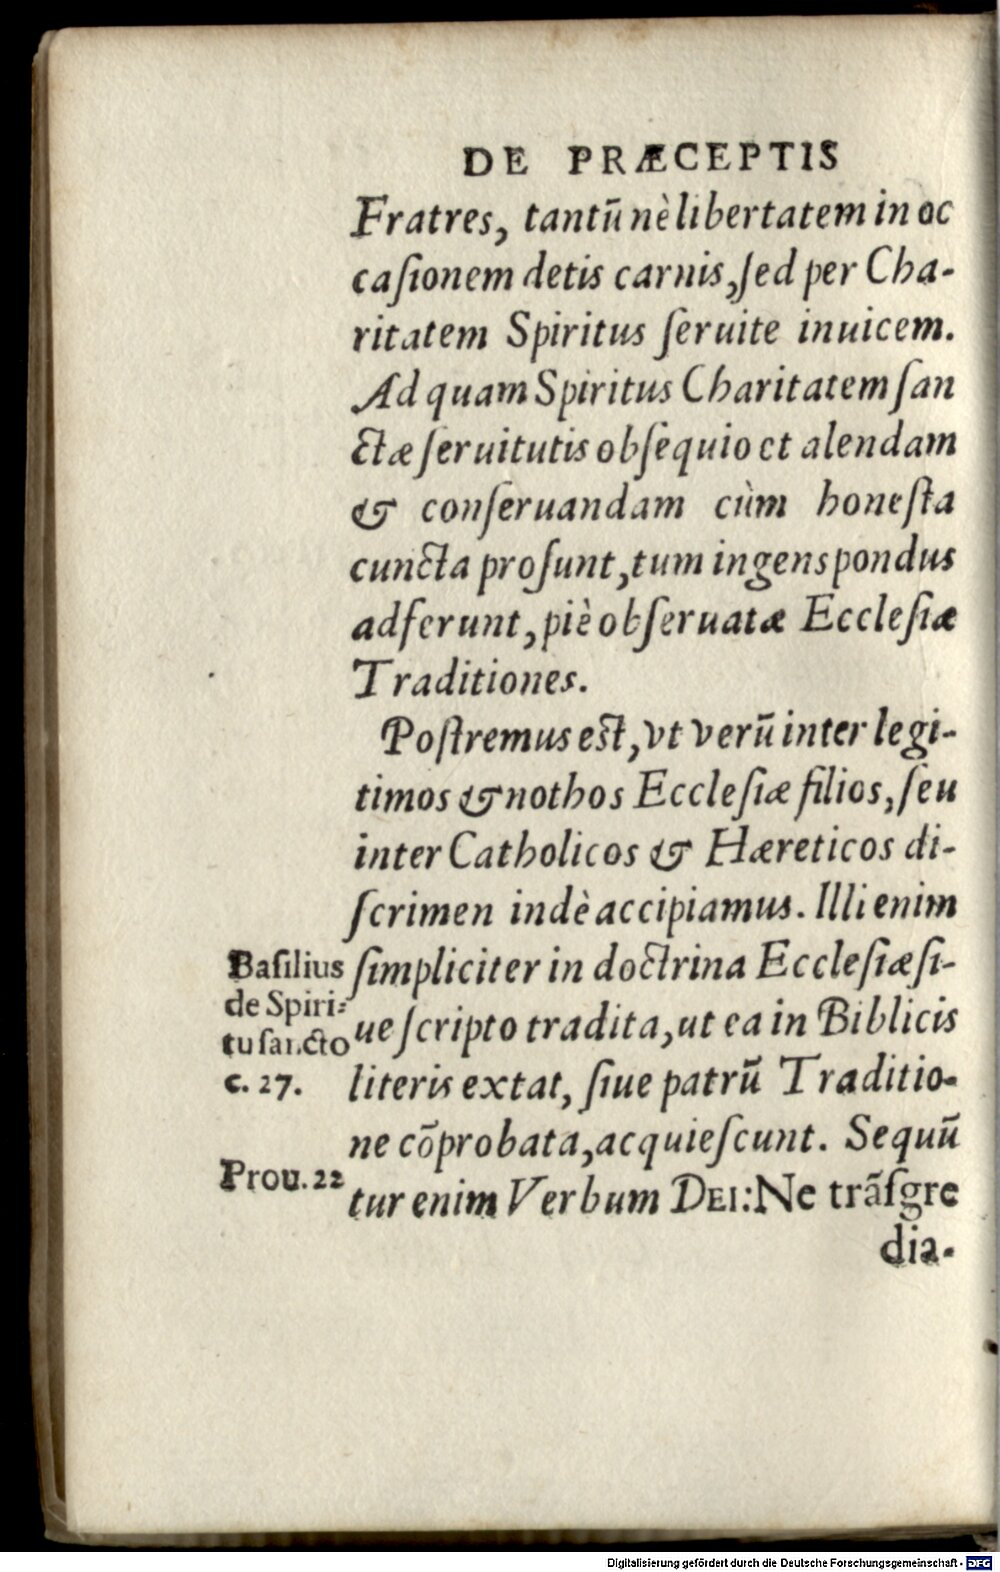 DE PRÆCEPTIS
Fratres, tantū nè libertatem in oc
caſionem detis carnis, ſed per Cha-
ritatem Spiritus ſeruite inuicem.
Ad quam Spiritus Charitatem ſan
ctæ ſeruitutis obſequio et alendam
& conſeruandam cùm honeſta
cuncta proſunt, tum ingens pondus
adferunt, piè obſeruatæ Eccleſiæ
Traditiones.
Poſtremus eſt, vt verū inter legi-
timos & nothos Eccleſiæ filios, ſeu
inter Catholicos & Hæreticos di-
ſcrimen indè accipiamus. Illi enim
ſimpliciter in doctrina Eccleſiæ ſi-
ue ſcripto tradita, ut ea in Biblicis
literis extat, ſiue patrū Traditio-
ne cōprobata, acquieſcunt. Sequū
tur enim Verbum DEI: Ne trāſgre
dia-
Baſilius
de Spiri-
tu ſancto
c. 27.
Prou. 22
Digitalisierung gefördert durch die Deutsche Forschungsgemeinschaft - DFG